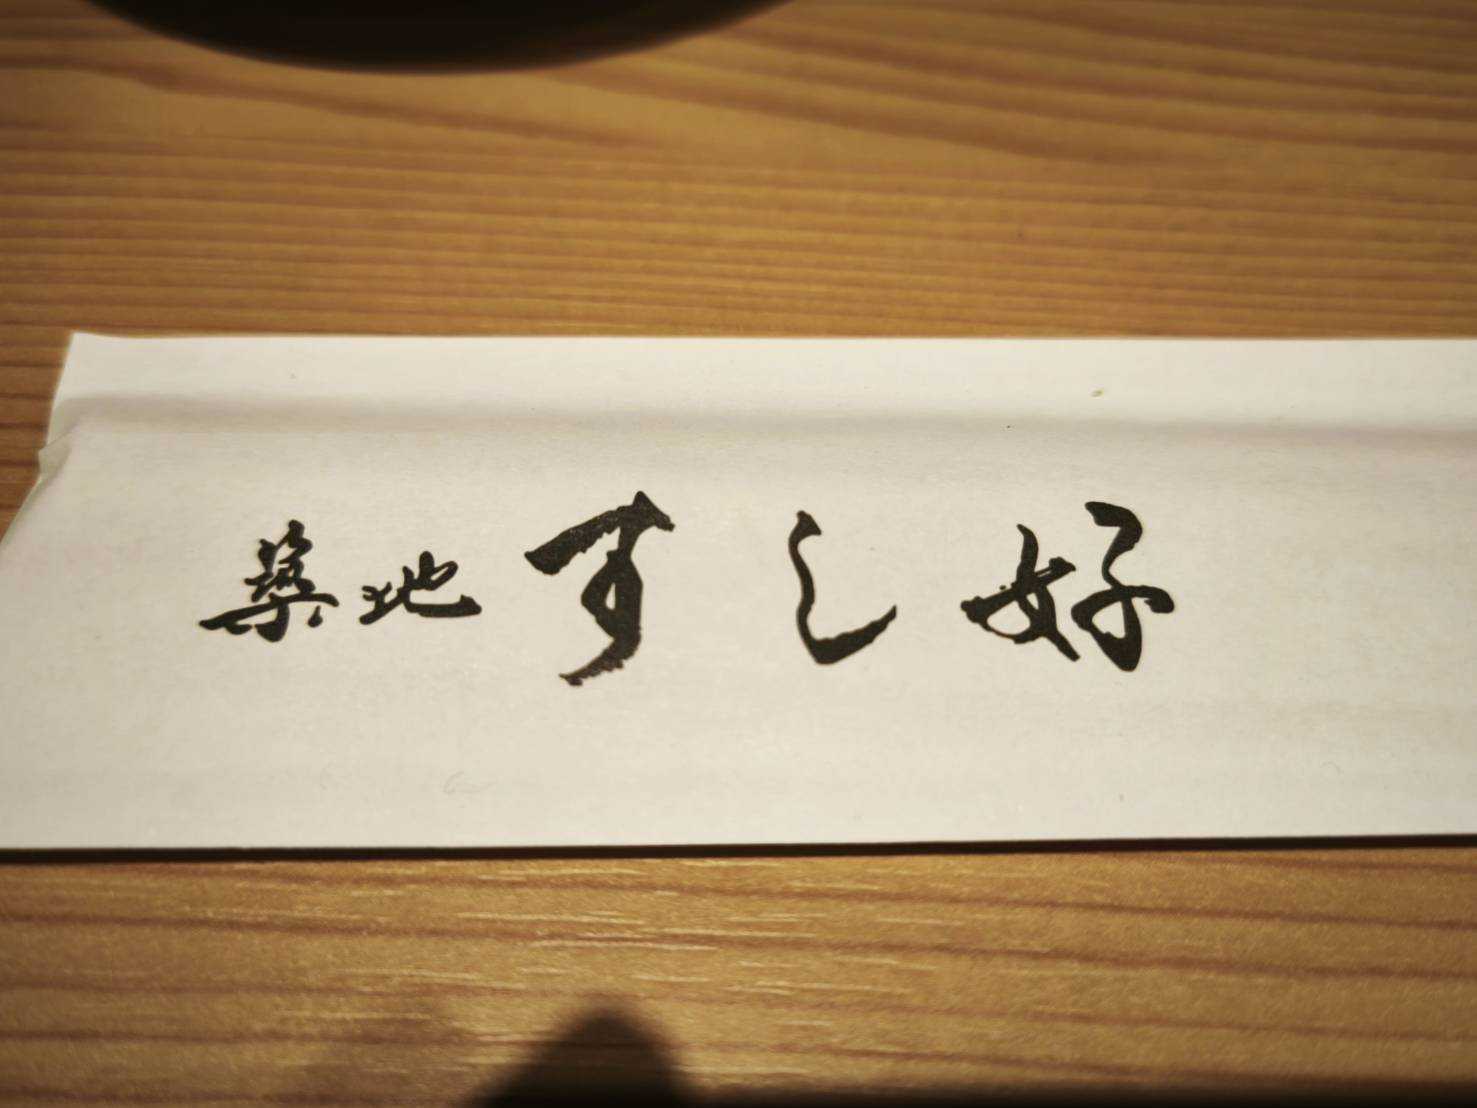 築地すし好